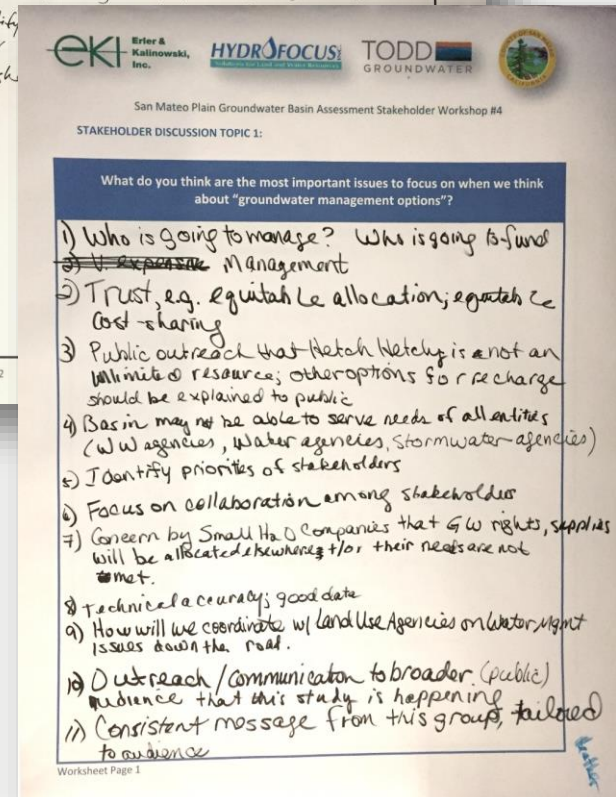 eki Erler &
Kalinowski,
Inc.
HYDROFOCUS INC
Solutions for Land and Water Resources
TODD
GROUNDWATER
COUNTY OF SAN MATEO
CALIFORNIA
San Mateo Plain Groundwater Basin Assessment Stakeholder Workshop #4
STAKEHOLDER DISCUSSION TOPIC 1:
What do you think are the most important issues to focus on when we think
about "groundwater management options"?
1) Who is going to manage? Who is going to fund
2) V. expensive Management
2) Trust, e.g. equitable allocation; equitable
cost-sharing
3) Public outreach that Hetch Hetchy is not an
unlimited resource; other options for recharge
should be explained to public
4) Basin may not be able to serve needs of all entities
(WW agencies, Water agencies, Stormwater agencies)
5) Identify priorites of stakeholders
6) Focus on collaboration among stakeholders
7) Concern by Small H2O Companies that GW rights, supplies
will be allocated elsewhere +/or their needs are not
met.
8) technical accuracy; good data
9) How will we coordinate w/ Land Use Agencies on Water Mgmt
Issues down the road.
10) Outreach / Communication to broader (public)
audience that this study is happening
11) Consistent message from this group, tailored
to audience
Worksheet Page 1
Heather